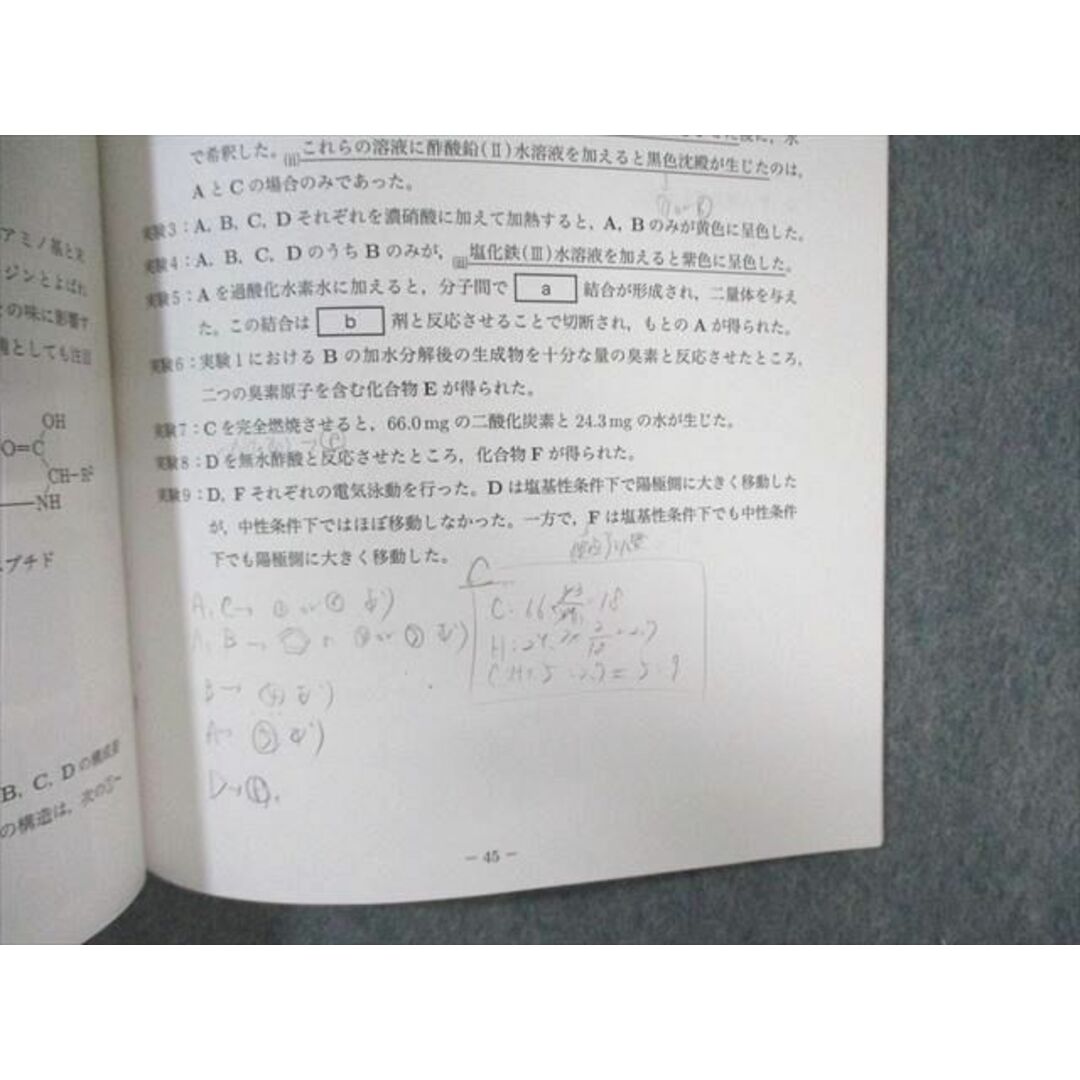 アミノ基と末
ジンとよばれ
の味に影響す
としても注目
OH
O=C
CH-R²
NH
プチド
B, C, Dの構成要
の構造は,次の①〜
た後に,水
で希釈した。(ii)これらの溶液に酢酸鉛(Ⅱ)水溶液を加えると黒色沈殿が生じたのは,
AとCの場合のみであった。
実験3:A, B, C, Dそれぞれを濃硝酸に加えて加熱すると,A, Bのみが黄色に呈色した。
実験4:A, B, C, DのうちBのみが,(iii)塩化鉄(Ⅲ)水溶液を加えると紫色に呈色した。
実験5:Aを過酸化水素水に加えると,分子間で a 結合が形成され,二量体を与え
た。この結合は b 剤と反応させることで切断され,もとのAが得られた。
実験6:実験1におけるBの加水分解後の生成物を十分な量の臭素と反応させたところ,
二つの臭素原子を含む化合物Eが得られた。
実験7:Cを完全燃焼させると,66.0mgの二酸化炭素と24.3mgの水が生じた。
実験8:Dを無水酢酸と反応させたところ,化合物Fが得られた。
実験9:D, Fそれぞれの電気泳動を行った。Dは塩基性条件下で陽極側に大きく移動した
が,中性条件下ではほぼ移動しなかった。一方で,Fは塩基性条件下でも中性条件
下でも陽極側に大きく移動した。
C
A, C→
C:66× =18
A, B→
H:24.3×2/18=2.7
B→
A→
D→
- 45 -